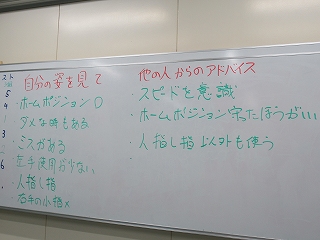 スト
5
4
3
6
自分の姿を見て
・ホームポジション〇
ダメな時もある
・ミスがある
左手使用が少ない
・人指し指
右手の小指×
他の人からのアドバイス
・スピードを意識
・ホームポジション守ったほうがいい
・人指し指以外も使う